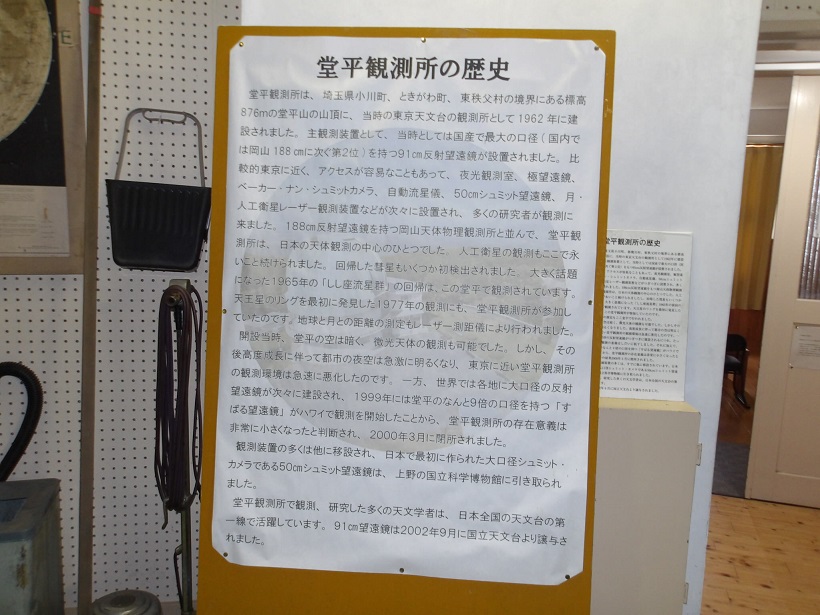 堂平観測所の歴史
堂平観測所は、埼玉県小川町、ときがわ町、東秩父村の境界にある標高
876mの堂平山の山頂に、当時の東京天文台の観測所として1962年に建
設されました。主観測装置として、当時としては国産で最大の口径(国内で
は岡山188cmに次ぐ第2位)を持つ91cm反射望遠鏡が設置されました。比
較的東京に近く、アクセスが容易なこともあって、夜光観測室、極望遠鏡、
ベーカー・ナン・シュミットカメラ、自動流星儀、50cmシュミット望遠鏡、月・
人工衛星レーザー観測装置などが次々に設置され、多くの研究者が観測に
来ました。188cm反射望遠鏡を持つ岡山天体物理観測所と並んで、堂平観
測所は、日本の天体観測の中心のひとつでした。人工衛星の観測もここで永
いこと続けられました。回帰した彗星もいくつか初検出されました。大きく話題
になった1965年の「しし座流星群」の回帰は、この堂平で観測されています。
天王星のリングを最初に発見した1977年の観測にも、堂平観測所が参加し
ていたのです。地球と月との距離の測定もレーザー測距儀により行われました。
開設当時、堂平の空は暗く、微光天体の観測も可能でした。しかし、その
後高度成長に伴って都市の夜空は急激に明るくなり、東京に近い堂平観測所
の観測環境は急速に悪化したのです。一方、世界では各地に大口径の反射
望遠鏡が次々に建設され、1999年には堂平のなんと9倍の口径を持つ「す
ばる望遠鏡」がハワイで観測を開始したことから、堂平観測所の存在意義は
非常に小さくなったと判断され、2000年3月に閉所されました。
観測装置の多くは他に移設され、日本で最初に作られた大口径シュミット・
カメラである50cmシュミット望遠鏡は、上野の国立科学博物館に引き取られ
ました。
堂平観測所で観測、研究した多くの天文学者は、日本全国の天文台の第
一線で活躍しています。91cm望遠鏡は2002年9月に国立天文台より譲与さ
れました。
堂平観測所の歴史